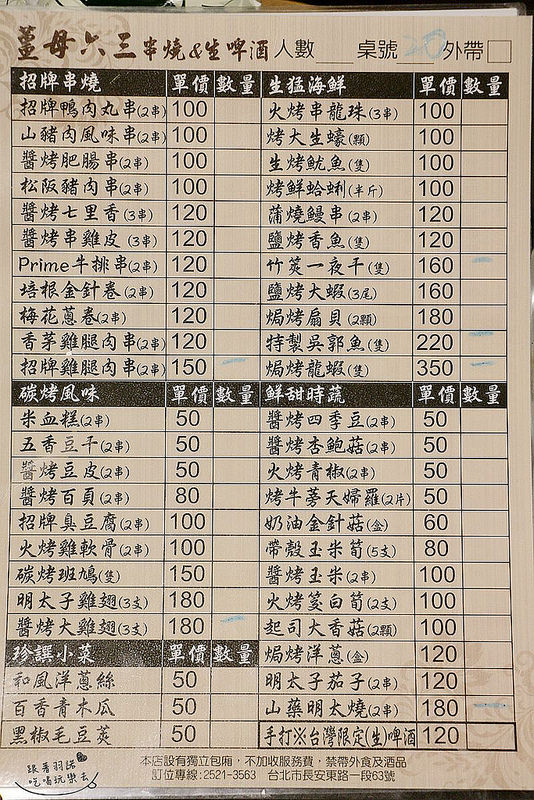 薑母六三串燒&生啤酒 人數 桌號 20 外帶
招牌串燒 單價 數量
招牌鴨肉丸串(2串) 100
山豬肉風味串(2串) 100
醬烤肥腸串(2串) 100
松阪豬肉串(2串) 100
醬烤七里香(3串) 120
醬烤串雞皮(3串) 120
Prime牛排串(2串) 120
培根金針卷(2串) 120
梅花蔥卷(2串) 120
香茅雞腿肉串(2串) 120
招牌雞腿肉串(2串) 150
碳烤風味 單價 數量
米血糕(2串) 50
五香豆干(2串) 50
醬烤豆皮(2串) 50
醬烤百頁(2串) 80
招牌臭豆腐(2串) 100
火烤雞軟骨(2串) 100
碳烤班鳩(隻) 150
明太子雞翅(3支) 180
醬烤大雞翅(3支) 180
珍饌小菜 單價 數量
和風洋蔥絲 50
百香青木瓜 50
黑椒毛豆莢 50
生猛海鮮 單價 數量
火烤串龍珠(3串) 100
烤大生蠔(顆) 100
生烤魷魚(隻) 100
烤鮮蛤蜊(半斤) 100
蒲燒鰻串(2串) 120
鹽烤香魚(隻) 120
竹筴一夜干(隻) 160
鹽烤大蝦(3尾) 160
焗烤扇貝(2顆) 180
特製吳郭魚(隻) 220
焗烤龍蝦(隻) 350
鮮甜時蔬 單價 數量
醬烤四季豆(2串) 50
醬烤杏鮑菇(2串) 50
火烤青椒(2串) 50
烤牛蒡天婦羅(2片) 50
奶油金針菇(盒) 60
帶殼玉米筍(5支) 80
醬烤玉米(2串) 100
火烤筊白筍(2支) 100
起司大香菇(2顆) 100
焗烤洋蔥(盒) 120
明太子茄子(2串) 120
山藥明太燒(2串) 180
手打※台灣限定(生)啤酒 120
本店設有獨立包廂，不加收服務費，禁帶外食及酒品
訂位專線:2521-3563 台北市長安東路一段63號
跟著羽諾
吃喝玩樂去